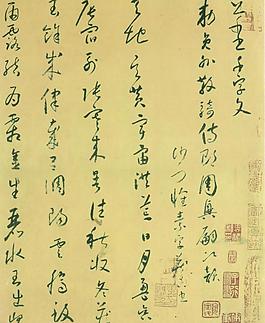 千字文
勅員外散騎侍郎周興嗣次韻
沙門懷素字藏真書
天地玄黃宇宙洪荒日月盈昃
辰宿列張寒來暑往秋收冬藏
閏餘成歲律呂調陽雲騰致
雨露結為霜金生麗水玉出崑